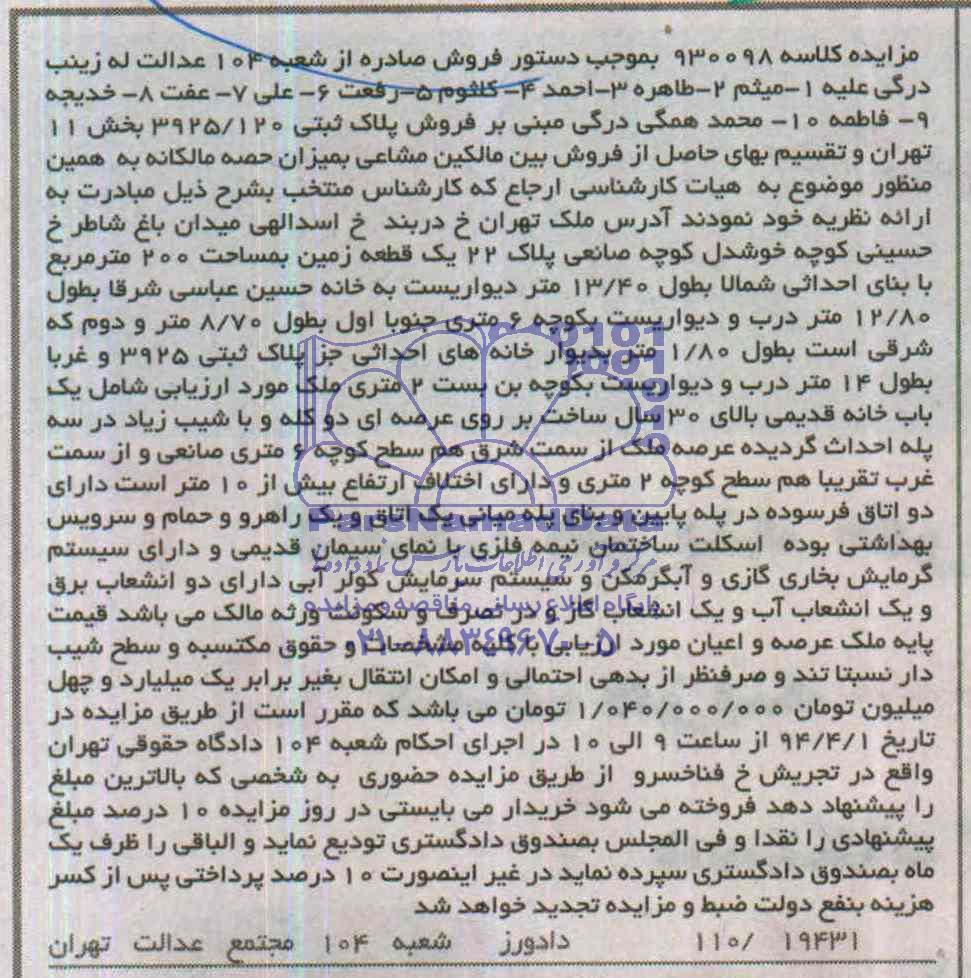 مزایده کلاسه ۹۳۰۰۹۸ بموجب دستور فروش صادره از شعبه ۱۰۴ عدالت له زینب
درگی علیه ۱-میثم ۲-طاهره ۳-احمد ۴- کلثوم ۵-رفعت ۶- علی ۷- عفت ۸- خدیجه
۹- فاطمه ۱۰- محمد همگی درگی مبنی بر فروش پلاک ثبتی ۳۹۲۵/۱۲۰ بخش ۱۱
تهران و تقسیم بهای حاصل از فروش بین مالکین مشاعی بمیزان حصه مالکانه به همین
منظور موضوع به هیات کارشناسی ارجاع که کارشناس منتخب بشرح ذیل مبادرت به
ارائه نظریه خود نمودند آدرس ملک تهران خ دربند خ اسدالهی میدان باغ شاطر خ
حسینی کوچه خوشدل کوچه صانعی پلاک ۲۲ یک قطعه زمین بمساحت ۲۰۰ مترمربع
با بنای احداثی شمالا بطول ۱۳/۴۰ متر دیواریست به خانه حسین عباسی شرقا بطول
۱۲/۸۰ متر درب و دیواریست بکوچه ۶ متری جنوبا اول بطول ۸/۷۰ متر و دوم که
شرقی است بطول ۱/۸۰ متر بدیوار خانه های احداثی جز پلاک ثبتی ۳۹۲۵ و غربا
بطول ۱۴ متر درب و دیواریست بکوچه بن بست ۲ متری ملک مورد ارزیابی شامل یک
باب خانه قدیمی بالای ۳۰ سال ساخت بر روی عرصه ای دو کله و با شیب زیاد در سه
پله احداث گردیده عرصه ملک از سمت شرق هم سطح کوچه ۶ متری صانعی و از سمت
غرب تقریبا هم سطح کوچه ۲ متری و دارای اختلاف ارتفاع بیش از ۱۰ متر است دارای
دو اتاق فرسوده در پله پایین و بنای پله میانی یک اتاق و یک راهرو و حمام و سرویس
بهداشتی بوده اسکلت ساختمان نیمه فلزی با نمای سیمان قدیمی و دارای سیستم
گرمایش بخاری گازی و آبگرمکن و سیستم سرمایش کولر آبی دارای دو انشعاب برق
و یک انشعاب آب و یک انشعاب گاز و در تصرف و سکونت ورثه مالک می باشد قیمت
پایه ملک عرصه و اعیان مورد ارزیابی با کلیه مشخصات و حقوق مکتسبه و سطح شیب
دار نسبتا تند و صرفنظر از بدهی احتمالی و امکان انتقال بغیر برابر یک میلیارد و چهل
میلیون تومان ۱/۰۴۰/۰۰۰/۰۰۰ تومان می باشد که مقرر است از طریق مزایده در
تاریخ ۹۴/۴/۱ از ساعت ۹ الی ۱۰ در اجرای احکام شعبه ۱۰۴ دادگاه حقوقی تهران
واقع در تجریش خ فناخسرو از طریق مزایده حضوری به شخصی که بالاترین مبلغ
را پیشنهاد دهد فروخته می شود خریدار می بایستی در روز مزایده ۱۰ درصد مبلغ
پیشنهادی را نقدا و فی المجلس بصندوق دادگستری تودیع نماید و الباقی را ظرف یک
ماه بصندوق دادگستری سپرده نماید در غیر اینصورت ۱۰ درصد پرداختی پس از کسر
هزینه بنفع دولت ضبط و مزایده تجدید خواهد شد
۱۹۴۳۱ /۱۱۰ دادورز شعبه ۱۰۴ مجتمع عدالت تهران
ParsNamadData
مرکز فرآوری اطلاعات پارس نماد داده ها
پایگاه اطلاع رسانی مناقصه و مزایده
۰۲۱-۸۸۳۴۹۶۷۰-۵